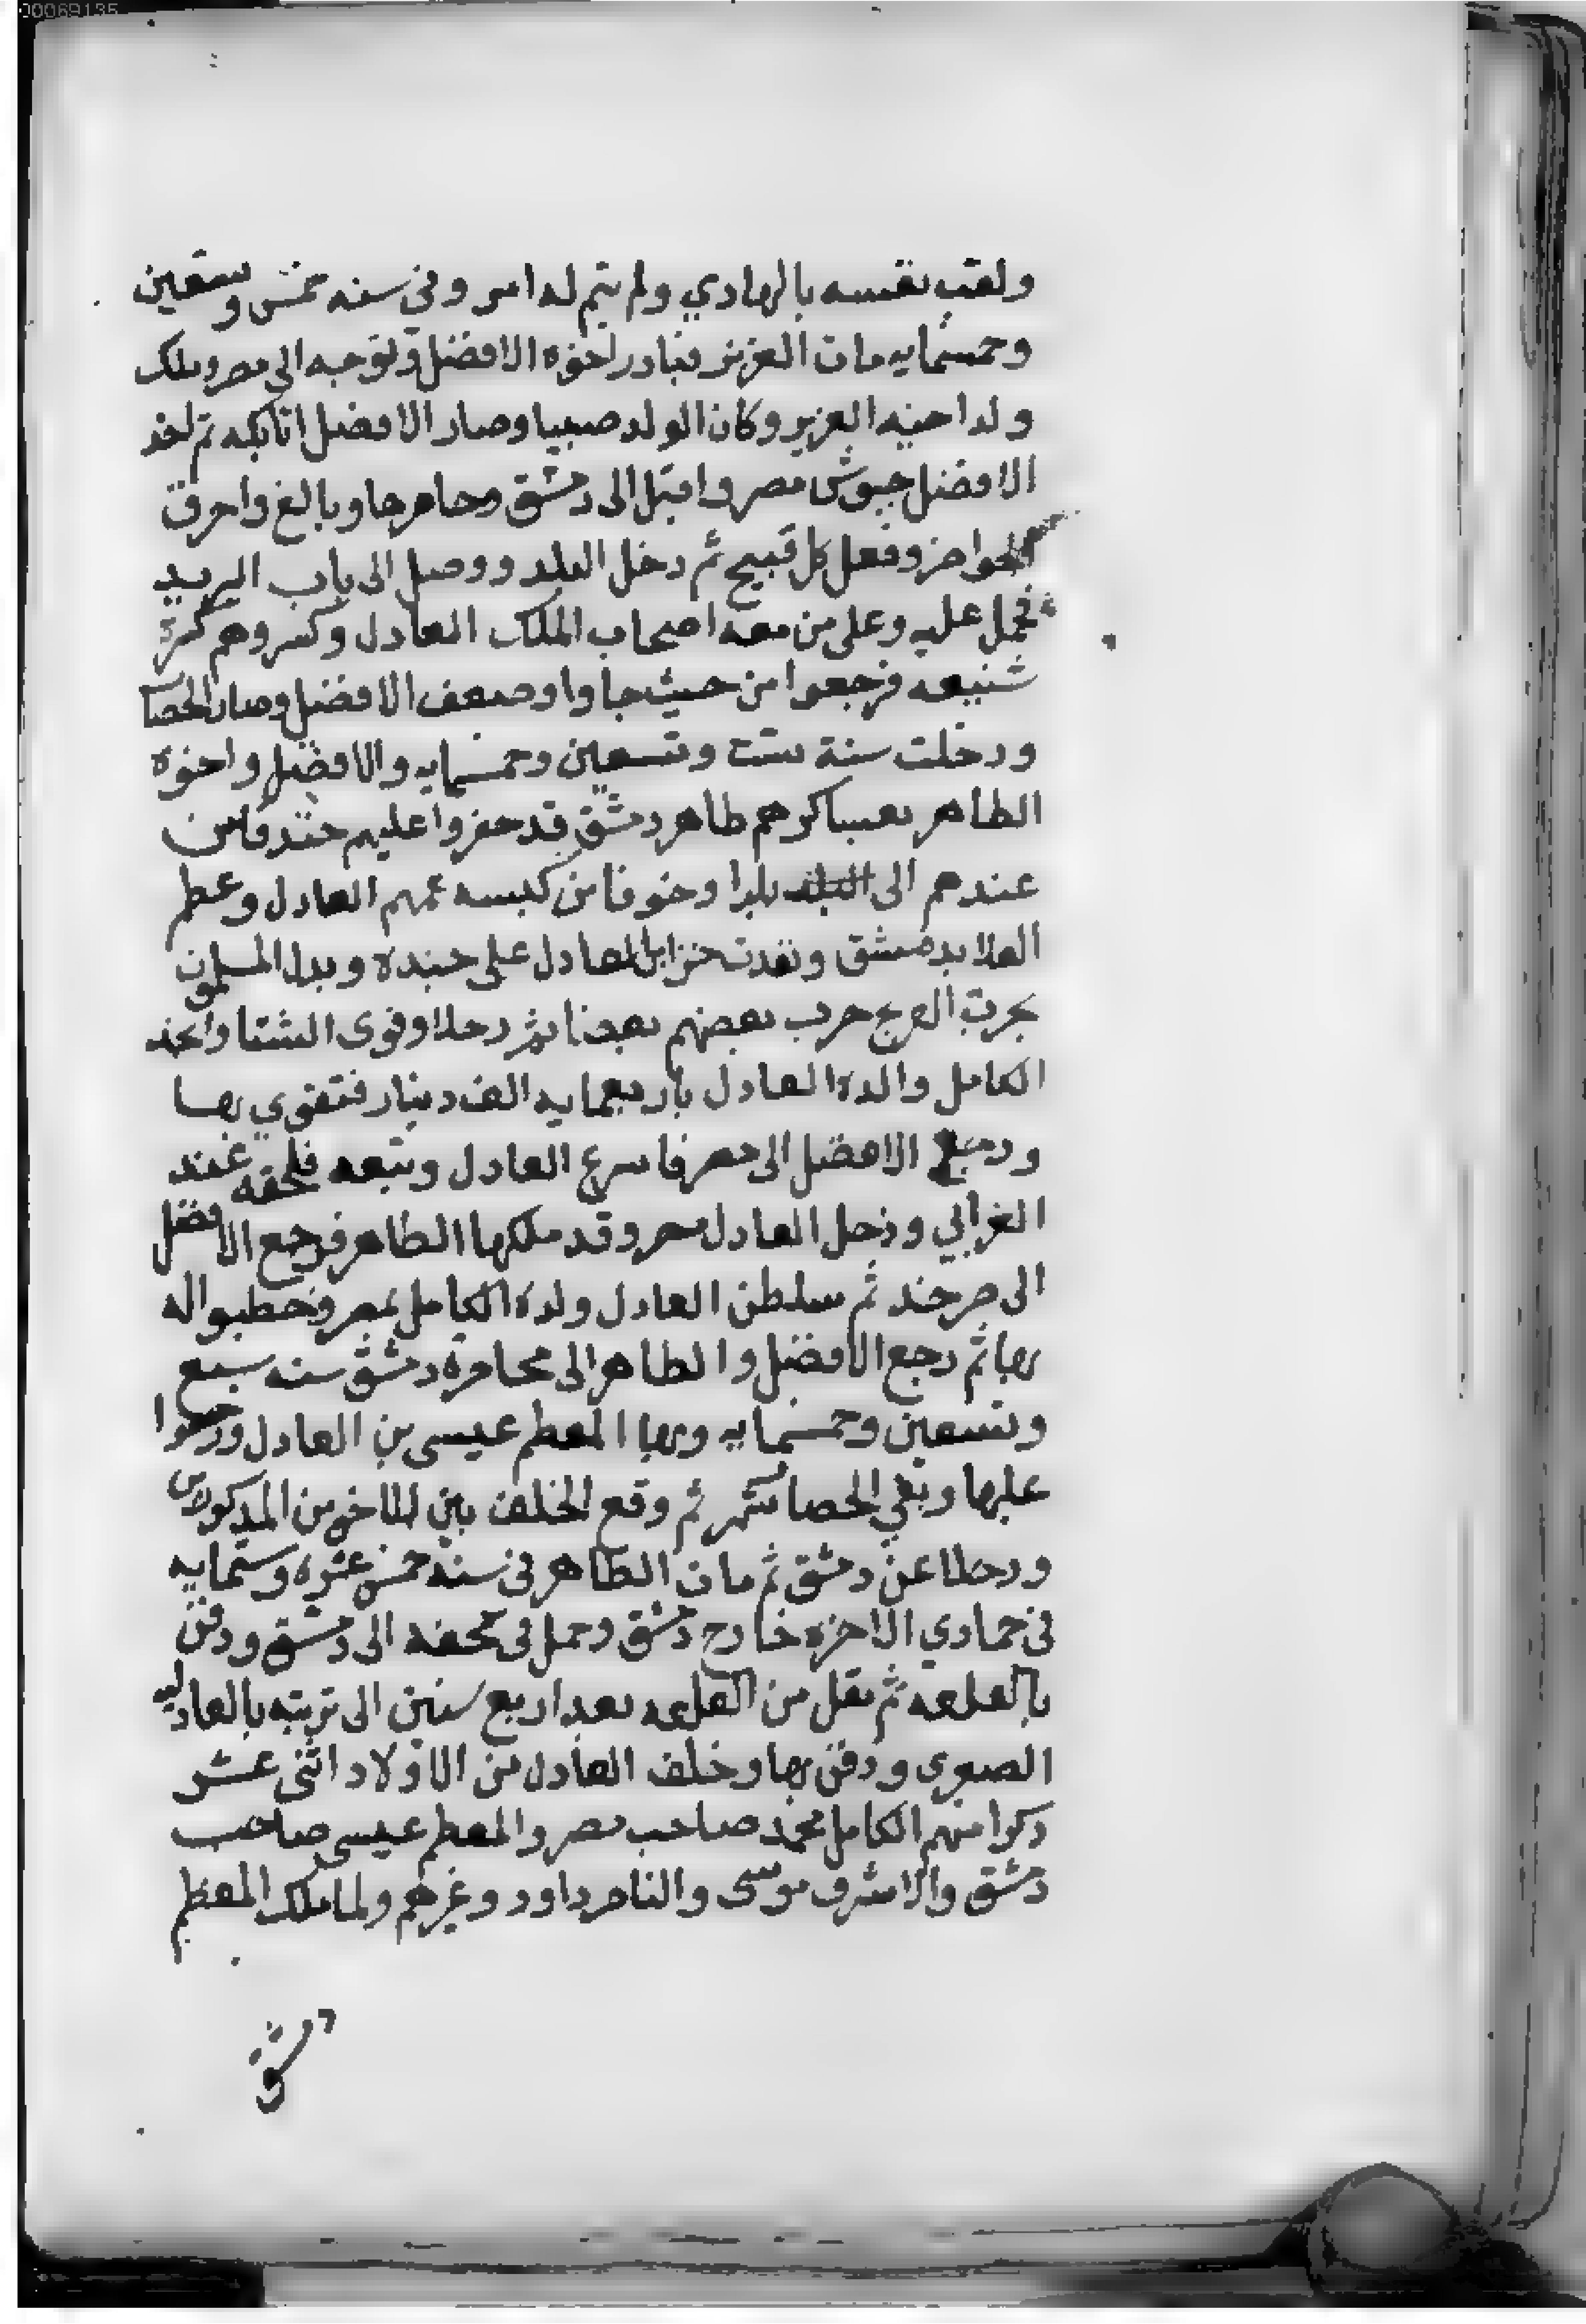 00069135
ولقب نفسه بالهادي ولم يتم له امر وفي سنه خمس وتسعين
وخمسمايه مات العزيز فبادر اخوه الافضل وتوجه الى مصر وملك
ولد اخيه العزيز وكان الولد صبيا وصار الافضل اتابكه ثم اخذ
الافضل جيوش مصر واقبل الى دمشق وحاصرها وبالغ واحرق
الحواضر وفعل كل قبيح ثم دخل البلد ووصل الى باب البريد
فحمل عليه وعلى من معه اصحاب الملك العادل وكسروهم كسرة
شنيعه فرجعوا من حيث جاوا وضعف الافضل وصار الحصا
ودخلت سنة ست وتسعين وخمسمايه والافضل واخوه
الظاهر بعساكرهم ظاهر دمشق قد حفروا عليهم خندقا من
عندهم الى يلدا وخوفا من كبسه عمهم العادل وعظم
الغلا بدمشق ونفدت خزاين العادل على جنده وبدل المسلمون
بحرب الفرج حرب بعضهم بعضا ثم رحلا وقوى الشتا واخذ
الكامل والده العادل باربعمايه الف دينار فتقوي بها
ورجع الافضل الى مصر فاسرع العادل وتبعه فلحقه عند
الغرابي ودخل العادل مصر وقد ملكها الظاهر فرجع الافضل
الى صرخد ثم سلطن العادل ولده الكامل بمصر وخطبوا له
بها ثم رجع الافضل والظاهر الى محاصرة دمشق سنه سبع
وتسعين وخمسمايه وبها المعظم عيسى بن العادل
عليها وبقي الحصا ثم وقع الخلف بين الاخوين المذكورين
ورحلا عن دمشق ثم مات الظاهر في سنة خمس عشره وستمايه
في جمادي الاخره خارج دمشق وحمل في محفه الى دمشق ودفن
بالقلعه ثم نقل من القلعه بعد اربع سنين الى تربته بالعادليه
الصغرى ودفن بها وخلف العادل من الاولاد اثنى عشر
ذكرا منهم الكامل محمد صاحب مصر والمعظم عيسى صاحب
دمشق والاشرف موسى والناصر داود وغيرهم ولما ملك المعظم
دمشق